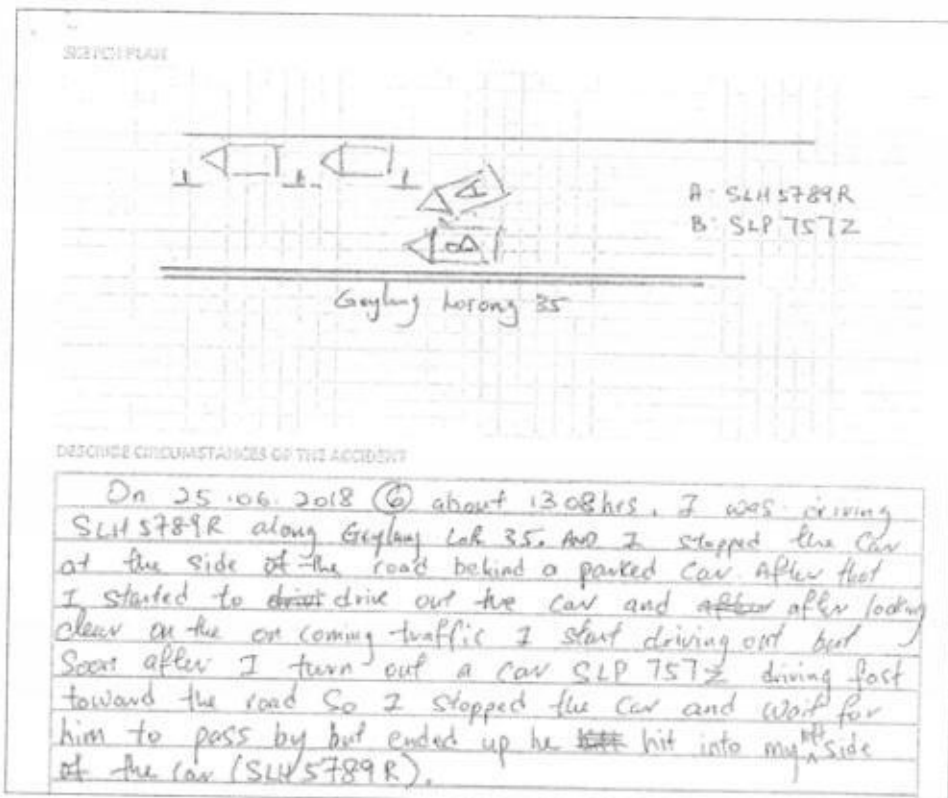 SKETCH PLAN
A
B
A: SLH 5789R
B: SLP 757Z
Geylang Lorong 35
DESCRIBE CIRCUMSTANCES OF THE ACCIDENT
On 25.06.2018 @ about 1308hrs, I was driving
SLH 5789R along Geylang Lor 35. AND I stopped the Car
at the side of the road behind a parked car. After that
I started to drive out the car and after looking
clear on the on coming traffic I start driving out but
Soon after I turn out a car SLP 757Z driving fast
toward the road So I stopped the Car and wait for
him to pass by but ended up he hit into my side
of the car (SLH 5789R).